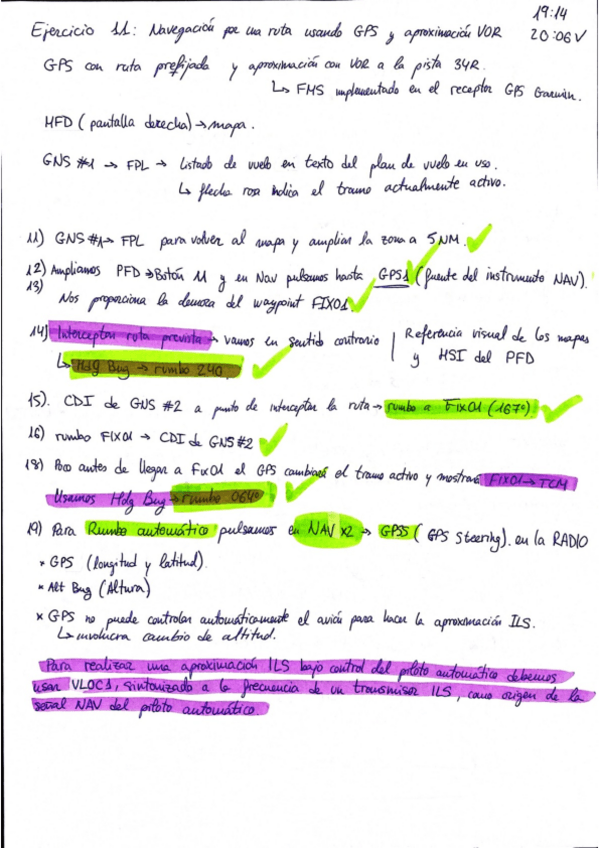 19:14
Ejercicio 11: Navegación por una ruta usando GPS y aproximación VOR
20:06 V
GPS con ruta prefijada y aproximación con VOR a la pista 34R.
↳ FMS implementado en el receptor GPS Garmin.
MFD (pantalla derecha) → mapa.
GNS #1 → FPL → Listado de vuelo en texto del plan de vuelo en uso.
↳ flecha rosa indica el tramo actualmente activo.
11) GNS #1 → FPL para volver al mapa y ampliar la zona a 5NM. ✓
12) Ampliamos PFD → Botón 11 y en Nav pulsamos hasta GPS1 (fuente del instrumento NAV).
13) Nos proporciona la demora del waypoint FIX01 ✓
14) Interceptar ruta prevista → vamos en sentido contrario | Referencia visual de los mapas
↳ Hdg Bug → rumbo 240. ✓ y HSI del PFD
15). CDI de GNS #2 a punto de interceptar la ruta → rumbo a FIX01 (167º) ✓
16) rumbo FIX01 → CDI de GNS #2 ✓
18) Poco antes de llegar a Fix01 el GPS cambiará el tramo activo y mostrará FIX01 → TCM
Usamos Hdg Bug → rumbo 064º ✓
19) Para Rumbo automático pulsamos en NAV x2 → GPSS (GPS Steering). en la RADIO
* GPS (longitud y latitud).
* Alt Bug (Altura)
* GPS no puede controlar automáticamente el avión para hacer la aproximación ILS.
↳ involucra cambio de altitud.
Para realizar una aproximación ILS bajo control del piloto automático debemos
usar VLOC1, sintonizado a la frecuencia de un transmisor ILS, como origen de la
señal NAV del piloto automático